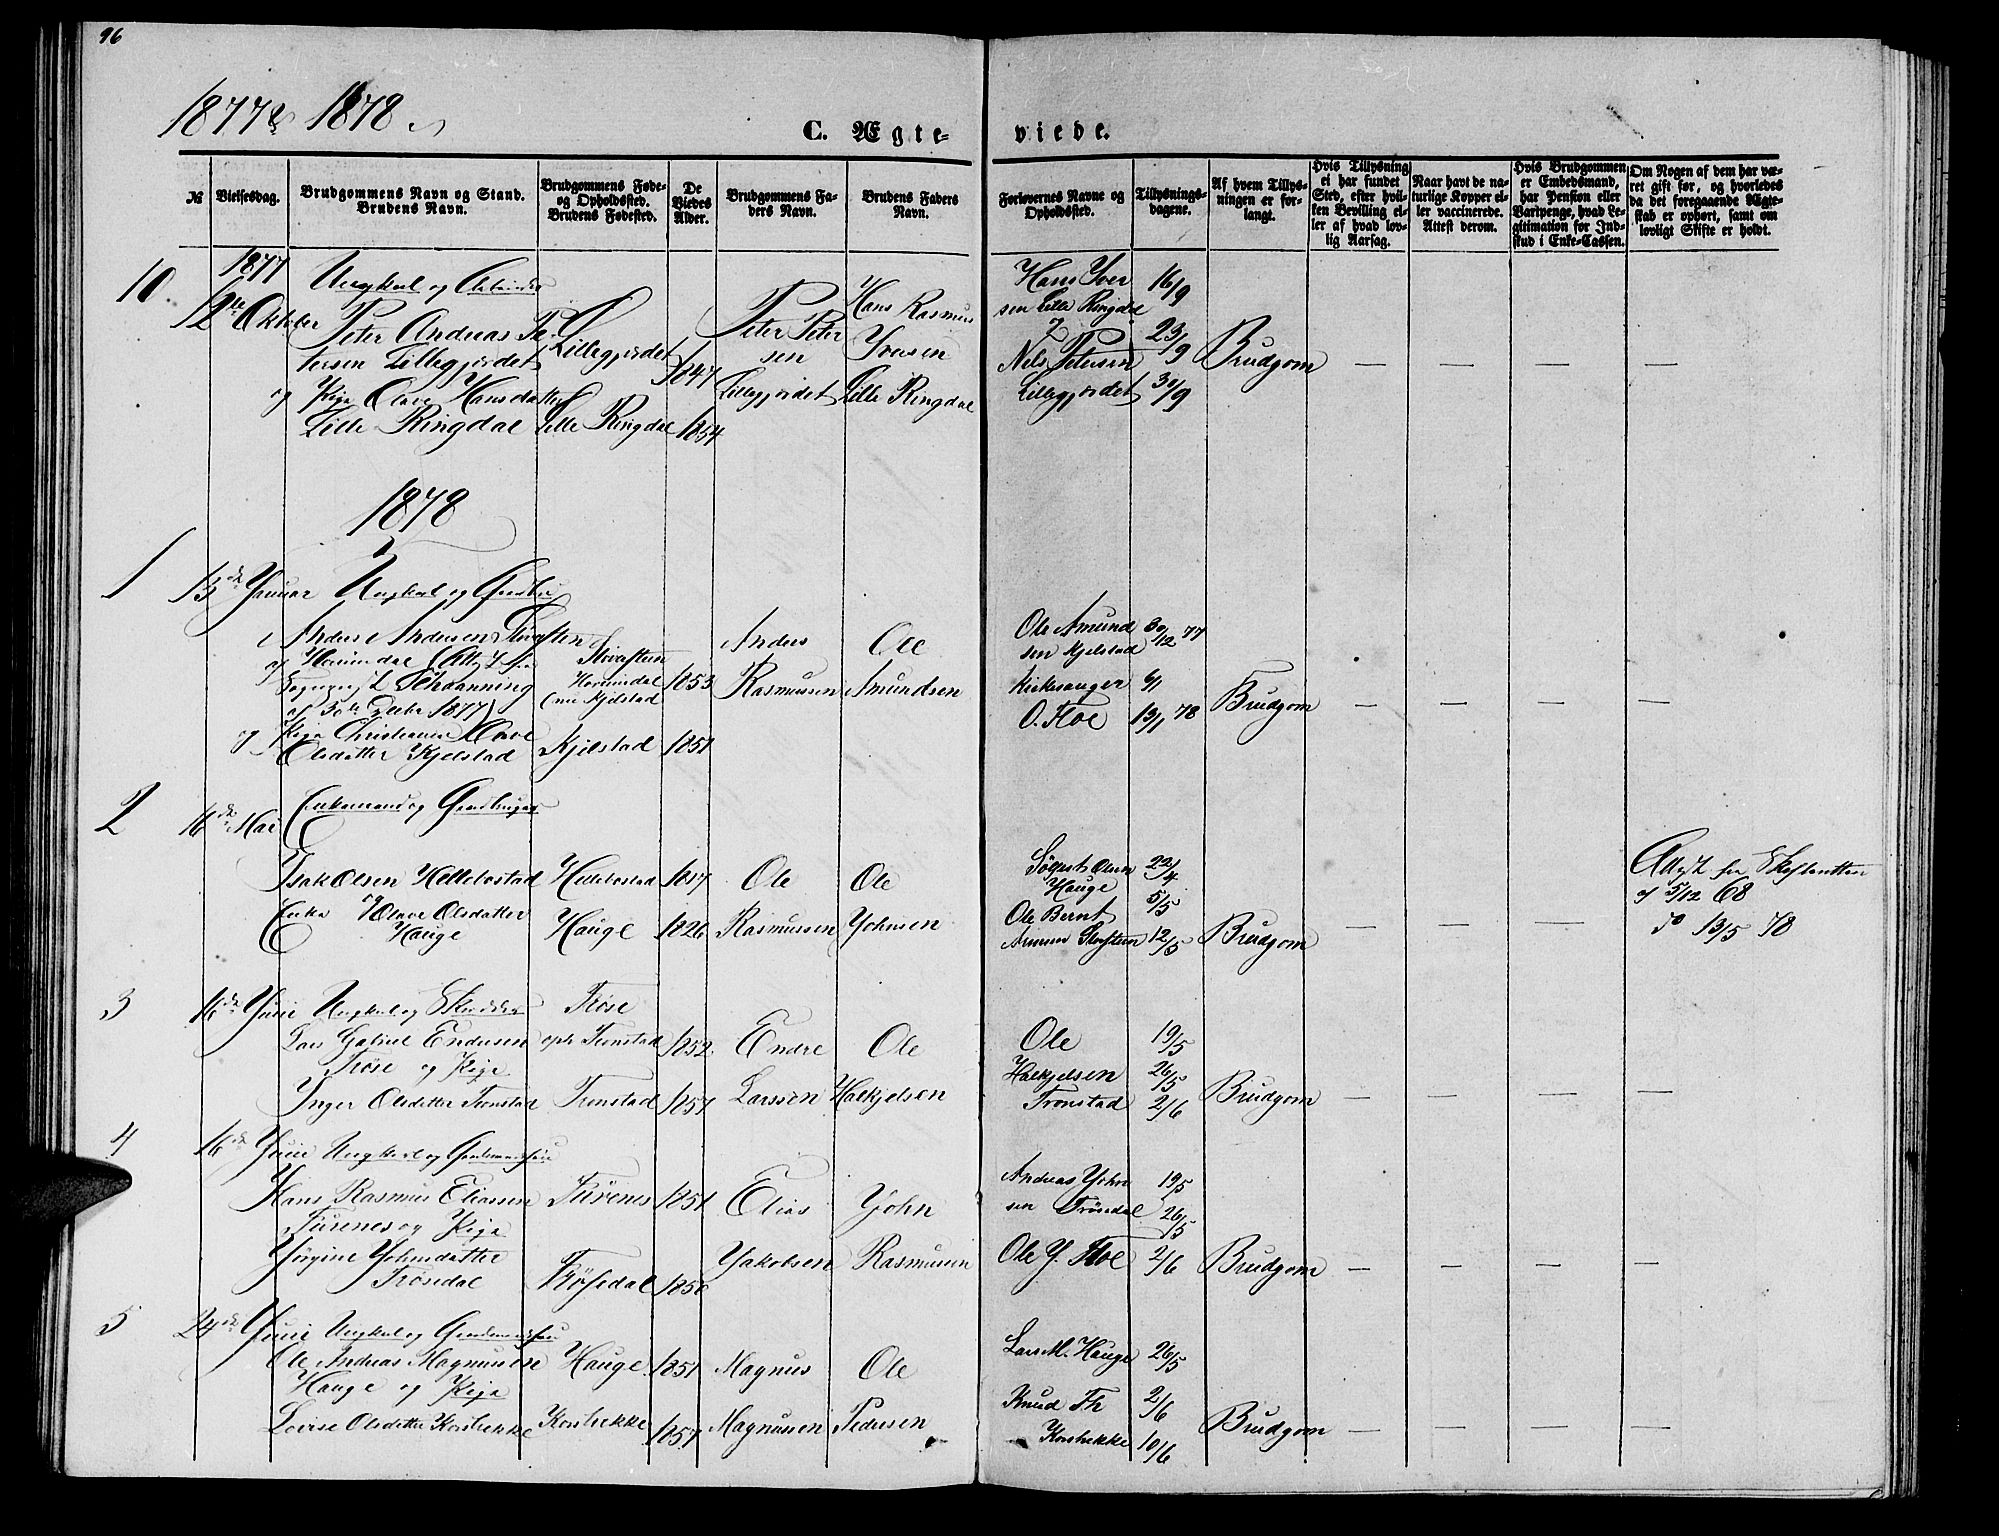 96
1877 & 1878
C. Ægte-
viede.
№
Vielsesdag.
Brudgommens Navn og Stand.
Brudens Navn.
Brudgommens Føde-
og Opholdssted.
Brudens Fødested.
De
Viedes
Alder.
Brudgommens Fa-
ders Navn.
Brudens Faders
Navn.
Forlovernes Navne og
Opholdssted.
Tillysnings-
dagene.
Af hvem Tillys-
ningen er for-
langt.
Hvis Tillysning
ei har fundet
Sted, efter hvil-
ken Bevilling el-
ler af hvad lov-
lig Aarsag.
Naar havt de na-
turlige Kopper el-
ler vaccinerede.
Attest derom.
Hvis Brudgommen
er Embedsmand,
har Pension eller
Vartpenge, hvad Le-
gitimation for Ind-
skud i Enke-Cassen.
Om Nogen af dem har væ-
ret gift før, og hvorledes
da det foregaaende Ægte-
skab er ophørt, samt om
lovligt Skifte er holdt.
1877
10.
12te Oktober
Ungkarl og
Peter Andreas Pe-
tersen Lillegjerdet
og Pige Olave Hansdatter
Lille Ringdal
Lillegjerdet
Lille Ringdal
1847
1854
Peter Peter
sen
Lillegjerdet
Hans Rasmus
Yversen
Lille Ringdal
Hans Yver
sen Lille Ringdal
Nels Petersen
Lillegjerdet
16/9
23/9
30/9
Brudgom
1878
1
13de Januar
Ungkarl og
Anders Andersen
og
Schaanning
af 30te Decbr 1877)
og Pige Christianne Olave
Olsdatter Kjelstad
Kjelstad
Kjelstad
1853
1851
Anders
Rasmussen
Ole
Amundsen
Ole Amund
sen Kjelstad
Kirkesanger
O. Floe
30/12 77
6/1
13/1 78
Brudgom
2
16de Mai
Enkemand og
Isak Olsen Hellebostad
og
Enke Olave Olsdatter
Hauge
Hellebostad
Hauge
1817
1826
Ole
Rasmussen
Ole
Johnsen
Hauge
Ole Bernt
22/4
5/5
12/5
Brudgom
af 5/12 68
do 13/5 78
3
16de Juni
Ungkarl og
Lars Gabriel Endresen
Trøse og Pige
Inger Olsdatter Tronstad
Trøse
oph Tronstad
Tronstad
1852
1857
Endre
Larssen
Ole
Halkjelsen
Ole
Halkjelsen
Tronstad
19/5
26/5
2/6
Brudgom
4
16de Juni
Ungkarl og
Hans Rasmus Eliassen
Furenes og Pige
Jørgine Johnsdatter
Trøsedal
Furenes
Trøsedal
1851
1850
Elias
Jakobsen
John
Rasmussen
Andreas John
sen Trøsedal
Ole J. Floe
19/5
26/5
2/6
Brudgom
5
24de Juni
Ungkarl og
Ole Andreas Magnussen
Hauge og Pige
Lovise Olsdatter Korsbrekke
Hauge
Korsbrekke
1851
1857
Magnus
Magnussen
Ole
Pedersen
Lars M. Hauge
Knud Th
Korsbrekke
26/5
2/6
10/6
Brudgom